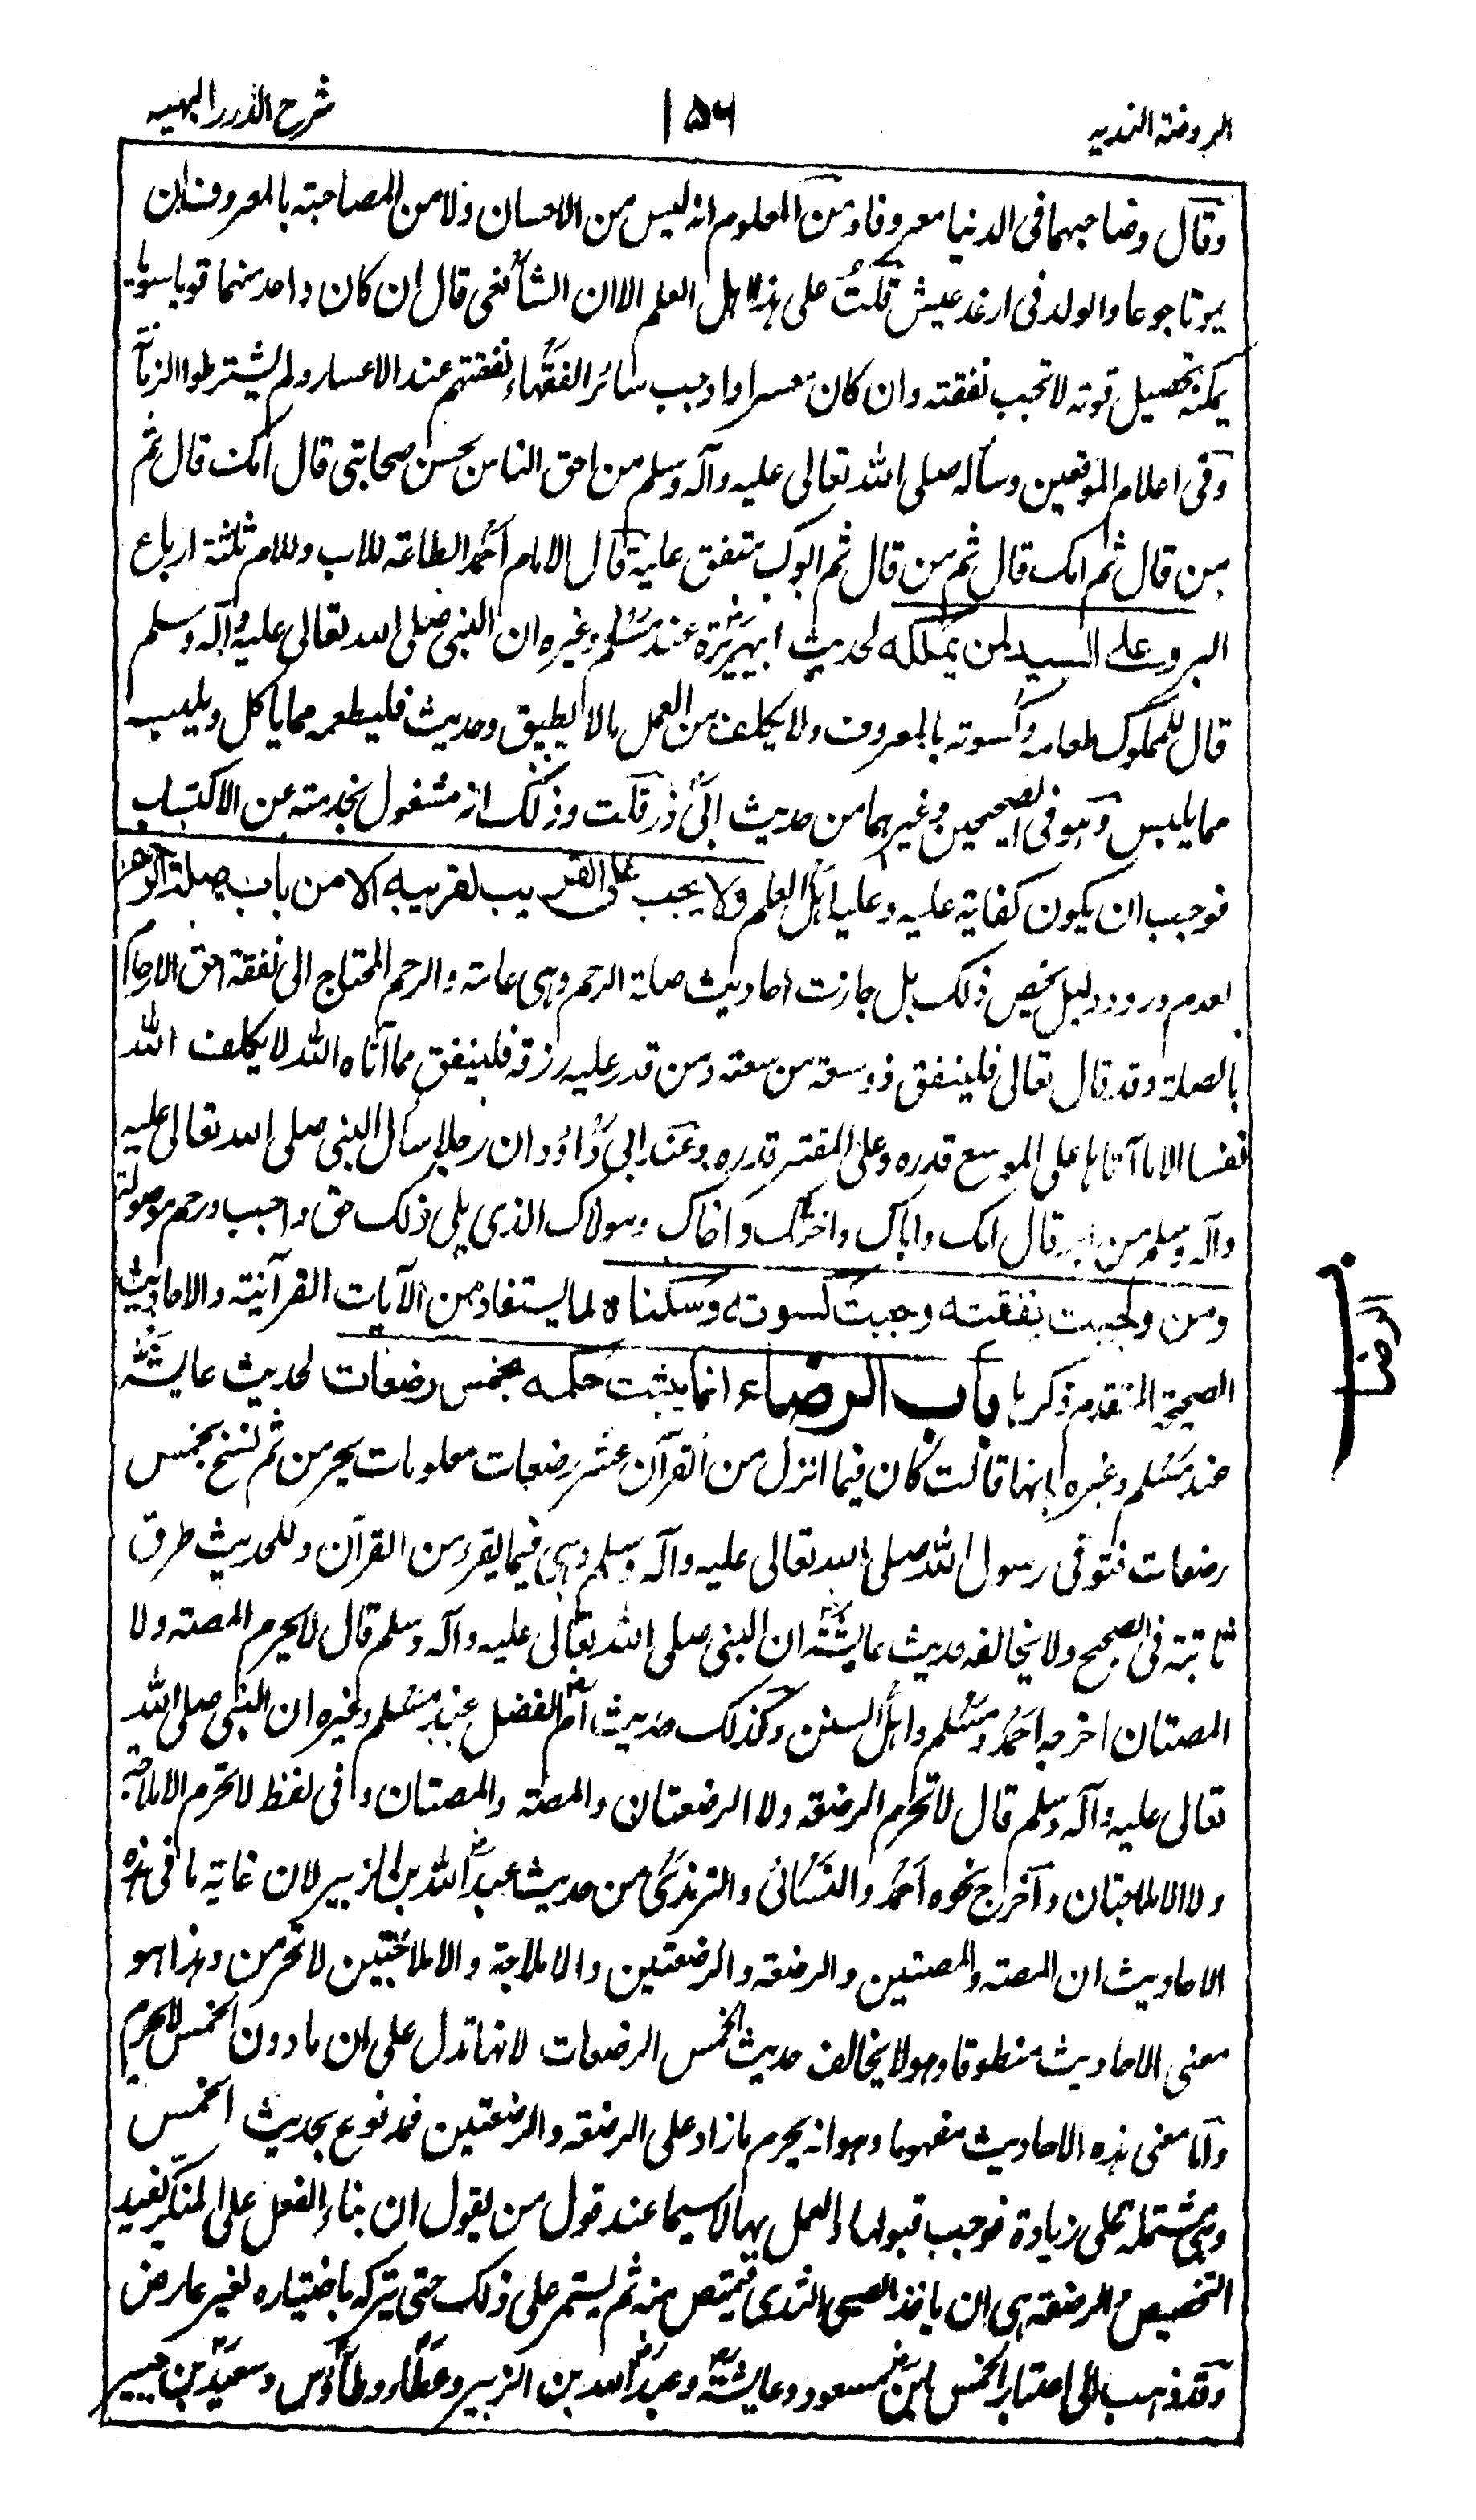 الروضة الندیه ۱۵۶ شرح الدرر البهیه
وقال وصاحبهما فی الدنیا معروفا ومن المعلوم انه لیس من الاحسان ولا من المصاحبة بالمعروف ان
یموتا جوعا والولد فی ارغد عیش قلت علی هذا اهل العلم الا ان الشافعی قال ان کان واحد منهما قویا سویا
یمکنه تحصیل قوته لا تجب نفقته وان کان معسرا واوجب سائر الفقهاء نفقتهم عند الاعسار ولم یشترطوا الزمانة
وفی اعلام الموقعین وسأله صلی الله تعالی علیه وآله وسلم من احق الناس بحسن صحابتی قال امک قال ثم
من قال ثم امک قال ثم من قال ثم ابوک متفق علیه قال الامام احمد الطاعة للاب وللام ثلثة ارباع
البر وعلی السید لمن یملکه لحدیث ابی هریرة عند مسلم وغیره ان النبی صلی الله تعالی علیه وآله وسلم
قال للمملوک طعامه وکسوته بالمعروف ولا یکلف من العمل ما لا یطیق وحدیث فلیطعمه مما یأکل ویلبسه
مما یلبس وهو فی الصحیحین وغیرهما من حدیث ابی ذر قلت وذلک انه مشغول بخدمته عن الاکتساب
فوجب ان یکون کفایته علیه وعلیه اهل العلم ولا یجب علی القریب لقریبه الا من باب صلة الرحم
لعدم ورود دلیل یخص ذلک بل جاءت احادیث صلة الرحم وهی عامة والرحم المحتاج الی نفقة احق الارحام
بالصلة وقد قال تعالی فلینفق ذو سعة من سعته ومن قدر علیه رزقه فلینفق مما آتاه الله لا یکلف الله
نفسا الا ما آتاها علی الموسع قدره وعلی المقتر قدره وعند ابی داود ان رجلا سأل النبی صلی الله تعالی علیه
وآله وسلم من ابر قال امک واباک واختک واخاک ومولاک الذی یلی ذلک حق واجب ورحم موصولة
ومن وجبت نفقته وجبت کسوته وسکناه لما یستفاد من الآیات القرآنیة والاحادیث
الصحیحة المتقدم ذکرها باب الرضاء انما یثبت حکمه بخمس رضعات لحدیث عایشة
عند مسلم وغیره انها قالت کان فیما انزل من القرآن عشر رضعات معلومات یحرمن ثم نسخ بخمس
رضعات فتوفی رسول الله صلی الله تعالی علیه وآله وسلم وهی فیما یقرء من القرآن وللحدیث طرق
ثابتة فی الصحیح ولا یخالفه حدیث عایشة ان النبی صلی الله تعالی علیه وآله وسلم قال لا یحرم المصة ولا
المصتان اخرجه احمد ومسلم واهل السنن وکذلک حدیث ام الفضل عند مسلم وغیره ان النبی صلی الله
تعالی علیه وآله وسلم قال لا تحرم الرضعة ولا الرضعتان والمصة والمصتان وفی لفظ لا تحرم الاملاجة
ولا الاملاجتان واخرج نحوه احمد والنسائی والترمذی من حدیث عبد الله بن الزبیر لان غایة ما فی هذه
الاحادیث ان المصة والمصتین والرضعة والرضعتین والاملاجة والاملاجتین لا تحرمن وهذا هو
معنی الاحادیث منطوقا وهو لا یخالف حدیث الخمس الرضعات لانها تدل علی ان ما دون الخمس لا یحرم
واما معنی هذه الاحادیث مفهوما وهو انه یحرم ما زاد علی الرضعة والرضعتین فمدفوع بحدیث الخمس
وهی مشتملة علی زیادة فوجب قبولها والعمل بها لا سیما عند قول من یقول ان بناء الفعل علی المنکر یفید
التخصیص والرضعة هی ان یاخذ الصبی الثدی فیمتص منه ثم یستمر علی ذلک حتی یترکه باختیاره لغیر عارض
وقد ذهب الی اعتبار الخمس ابن مسعود وعایشة وعبد الله بن الزبیر وعطاء وطاؤس وسعید بن جبیر